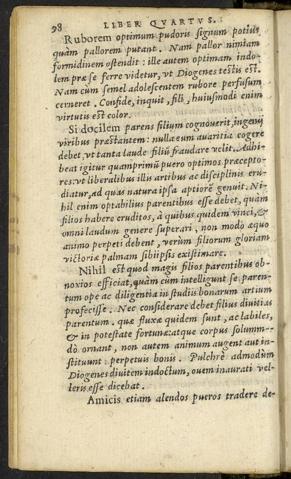 98 LIBER QVARTVS.
Ruborem optimum pudoris signum potius
quàm pallorem putant. Nam pallor nimiam
formidinem ostendit: ille autem optimam indo-
lem præ se ferre videtur, vt Diogenes testis est.
Nam cum semel adolescentem rubore perfusum
cerneret. Confide, inquit, fili, huiusmodi enim
virtutis est color.
Si docilem parens filium cognouerit, ingenij
viribus præstantem: nulla eum auaritia cogere
debet, vt tanta laude filiū fraudare velit. Adhi-
beat igitur quamprimū puero optimos præcepto-
res: vt liberalibus illis artibus ac disciplinis eru-
diatur, ad quas natura ipsa aptiorē genuit. Ni-
hil enim optabilius parentibus esse debet, quàm
filios habere eruditos, à quibus quidem vinci, &
omni laudum genere superari, non modo æquo
animo perpeti debent, verùm filiorum gloriam
victoriæ palmam sibiipsis existimare.
Nihil est quod magis filios parentibus ob-
noxios efficiat, quàm cùm intelligunt se paren-
tum ope ac diligentia in studiis bonarum artium
profecisse. Nec considerare debet filius diuitias
parentum, quæ fluxæ quidem sunt, ac labiles,
& in potestate fortunæ: atque corpus solummo-
dò ornant, non autem animum augent aut in-
stituunt perpetuis bonis. Pulchrè admodùm
Diogenes diuitem indoctum, ouem inaurati vel-
leris esse dicebat.
Amicis etiam alendos pueros tradere de-